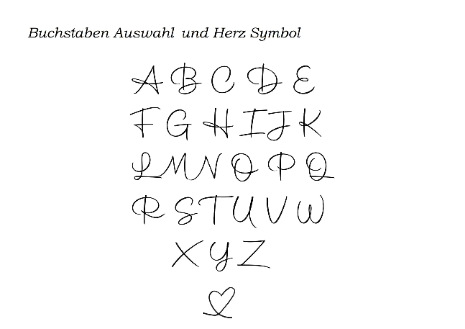 Buchstaben Auswahl und Herz Symbol
A B C D E
F G H I J K
L M N O P Q
R S T U V W
X Y Z
♡